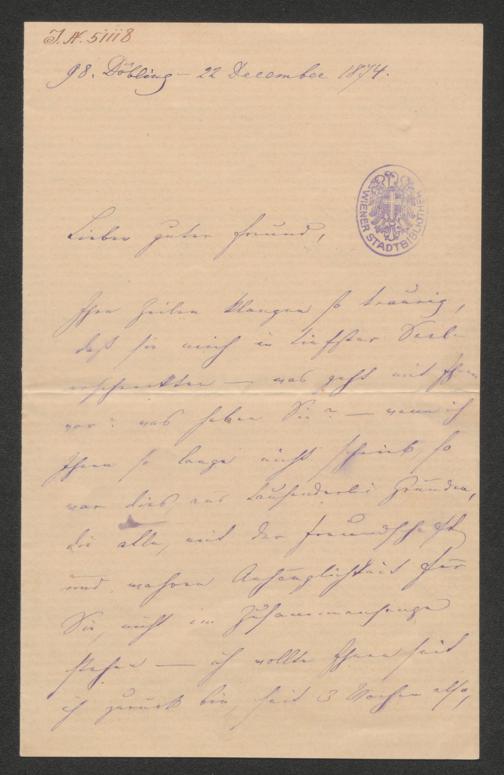 J. N. 51118
98. Döbling – 22 December 1874.
WIENER STADTBIBLIOTHEK
Lieber guter Freund,
Ihre Zeilen klangen so traurig,
daß sie mich in tiefster Seele
erschreckten — was geht mit Ihnen
vor? was haben Sie? — wenn ich
Ihnen so lange nicht schrieb, so
war dies aus tausenderlei Gründen,
die alle, mit der Freundschaft
und wahren Anhänglichkeit für
Sie, nicht im Zusammenhange
stehen — ich wollte Ihnen seit
ich zurück bin, seit 3 Wochen also,